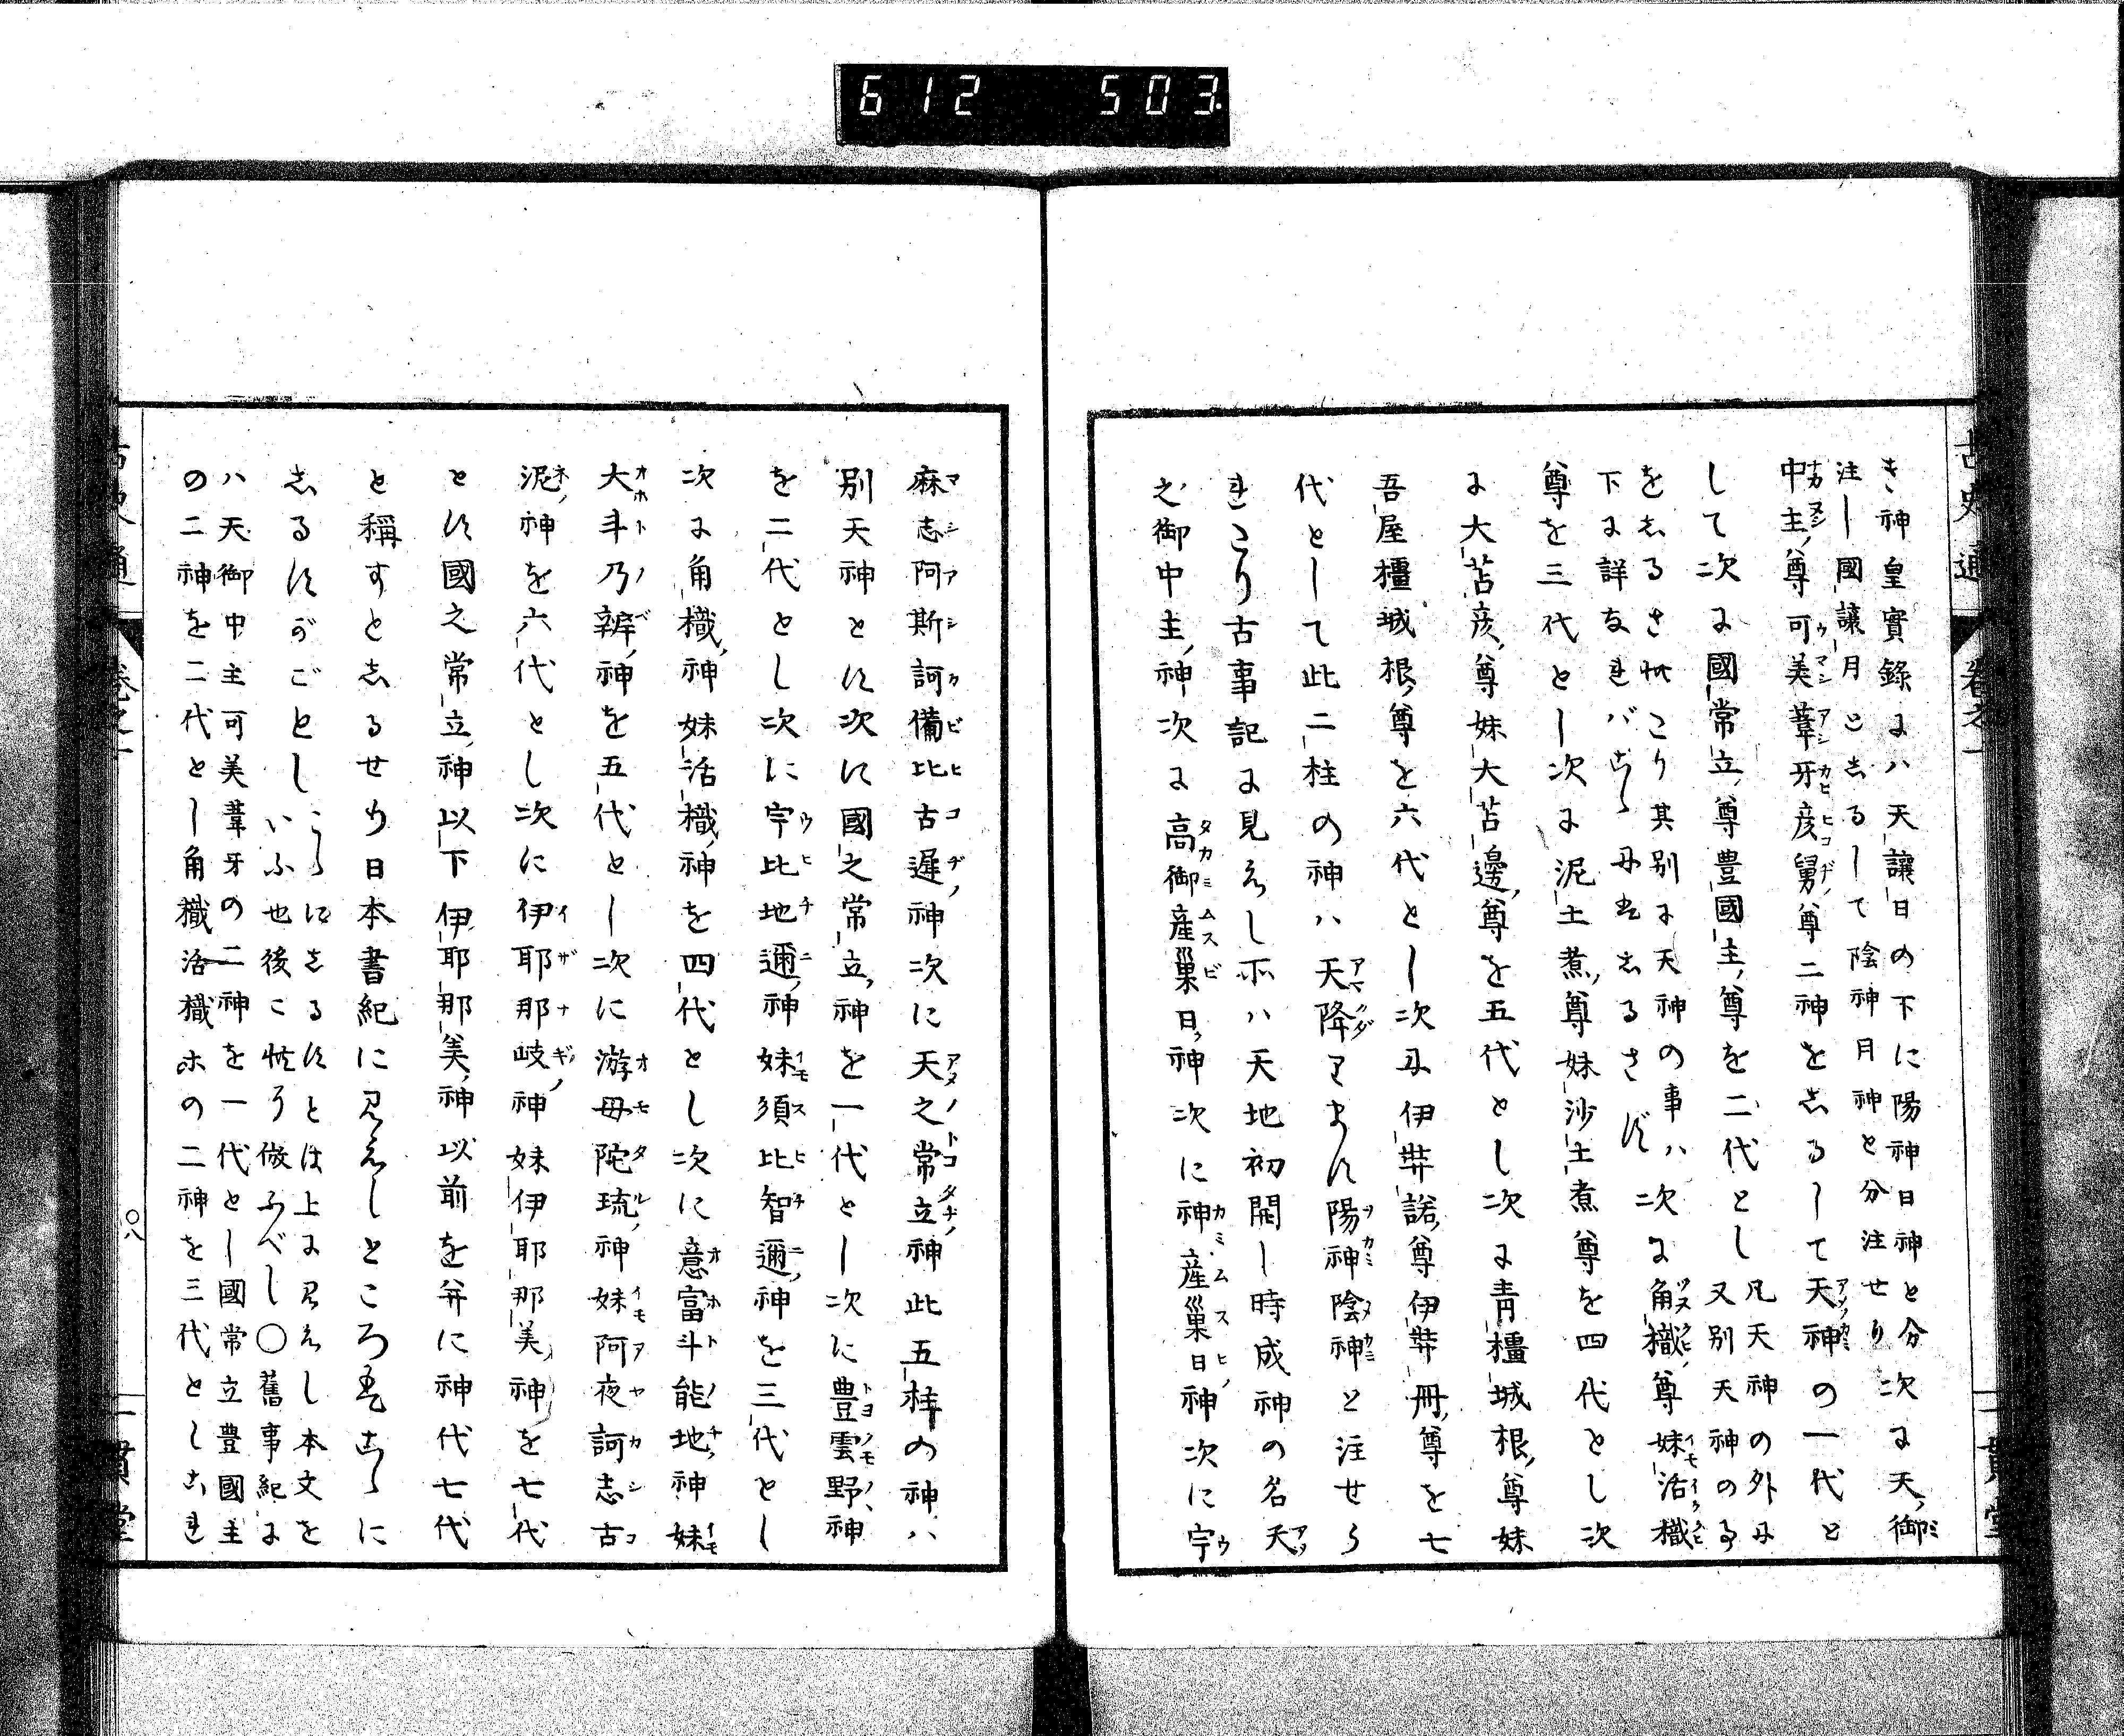 612 503
古史通 卷之一 一貫堂
き神皇實錄にハ天讓日の下に陽神日神と分次に天御
注し國讓月としるして陰神月神と分注せり
中主尊可美葦牙彦舅尊二神をしるして天神の一代と
して次に國常立尊豊國主尊を二代とし
凡天神の外に
又別天神のゐ
をしるされたり其別に天神の事ハ次に角樴尊妹活樴
下に詳なれバこゝにハしるさず
尊を三代とし次に泥土煮尊妹沙土煮尊を四代とし次
に大苫彦尊妹大苫邊尊を五代とし次に青橿城根尊妹
吾屋橿城根尊を六代とし次に伊弉諾尊伊弉冊尊を七
代として此二柱の神ハ天降ります陽神陰神と注せら
れたり古事記に見えし所ハ天地初開し時成神の名天
之御中主神次に高御產巢日神次に神產巢日神次に宇
麻志阿斯訶備比古遲神次に天之常立神此五柱の神ハ
別天神とす次に國之常立神を一代とし次に豊雲野神
を二代とし次に宇比地邇神妹須比智邇神を三代とし
次に角樴神妹活樴神を四代とし次に意富斗能地神妹
大斗乃辨神を五代とし次に游母陀琉神妹阿夜訶志古
泥神を六代とし次に伊耶那岐神妹伊耶那美神を七代
とす國之常立神以下伊耶那美神以前を并に神代七代
と稱すとしるせり日本書紀に見えしところハこゝに
しるすがごとし
こゝにしるすとは上に見えし本文を
いふ也後これに倣ふべし〇舊事紀に
ハ天御中主可美葦牙の二神を一代とし國常立豊國主
の二神を二代とし角樴活樴ホの二神を三代としこれ
古史通 卷之一 〇八 一貫堂